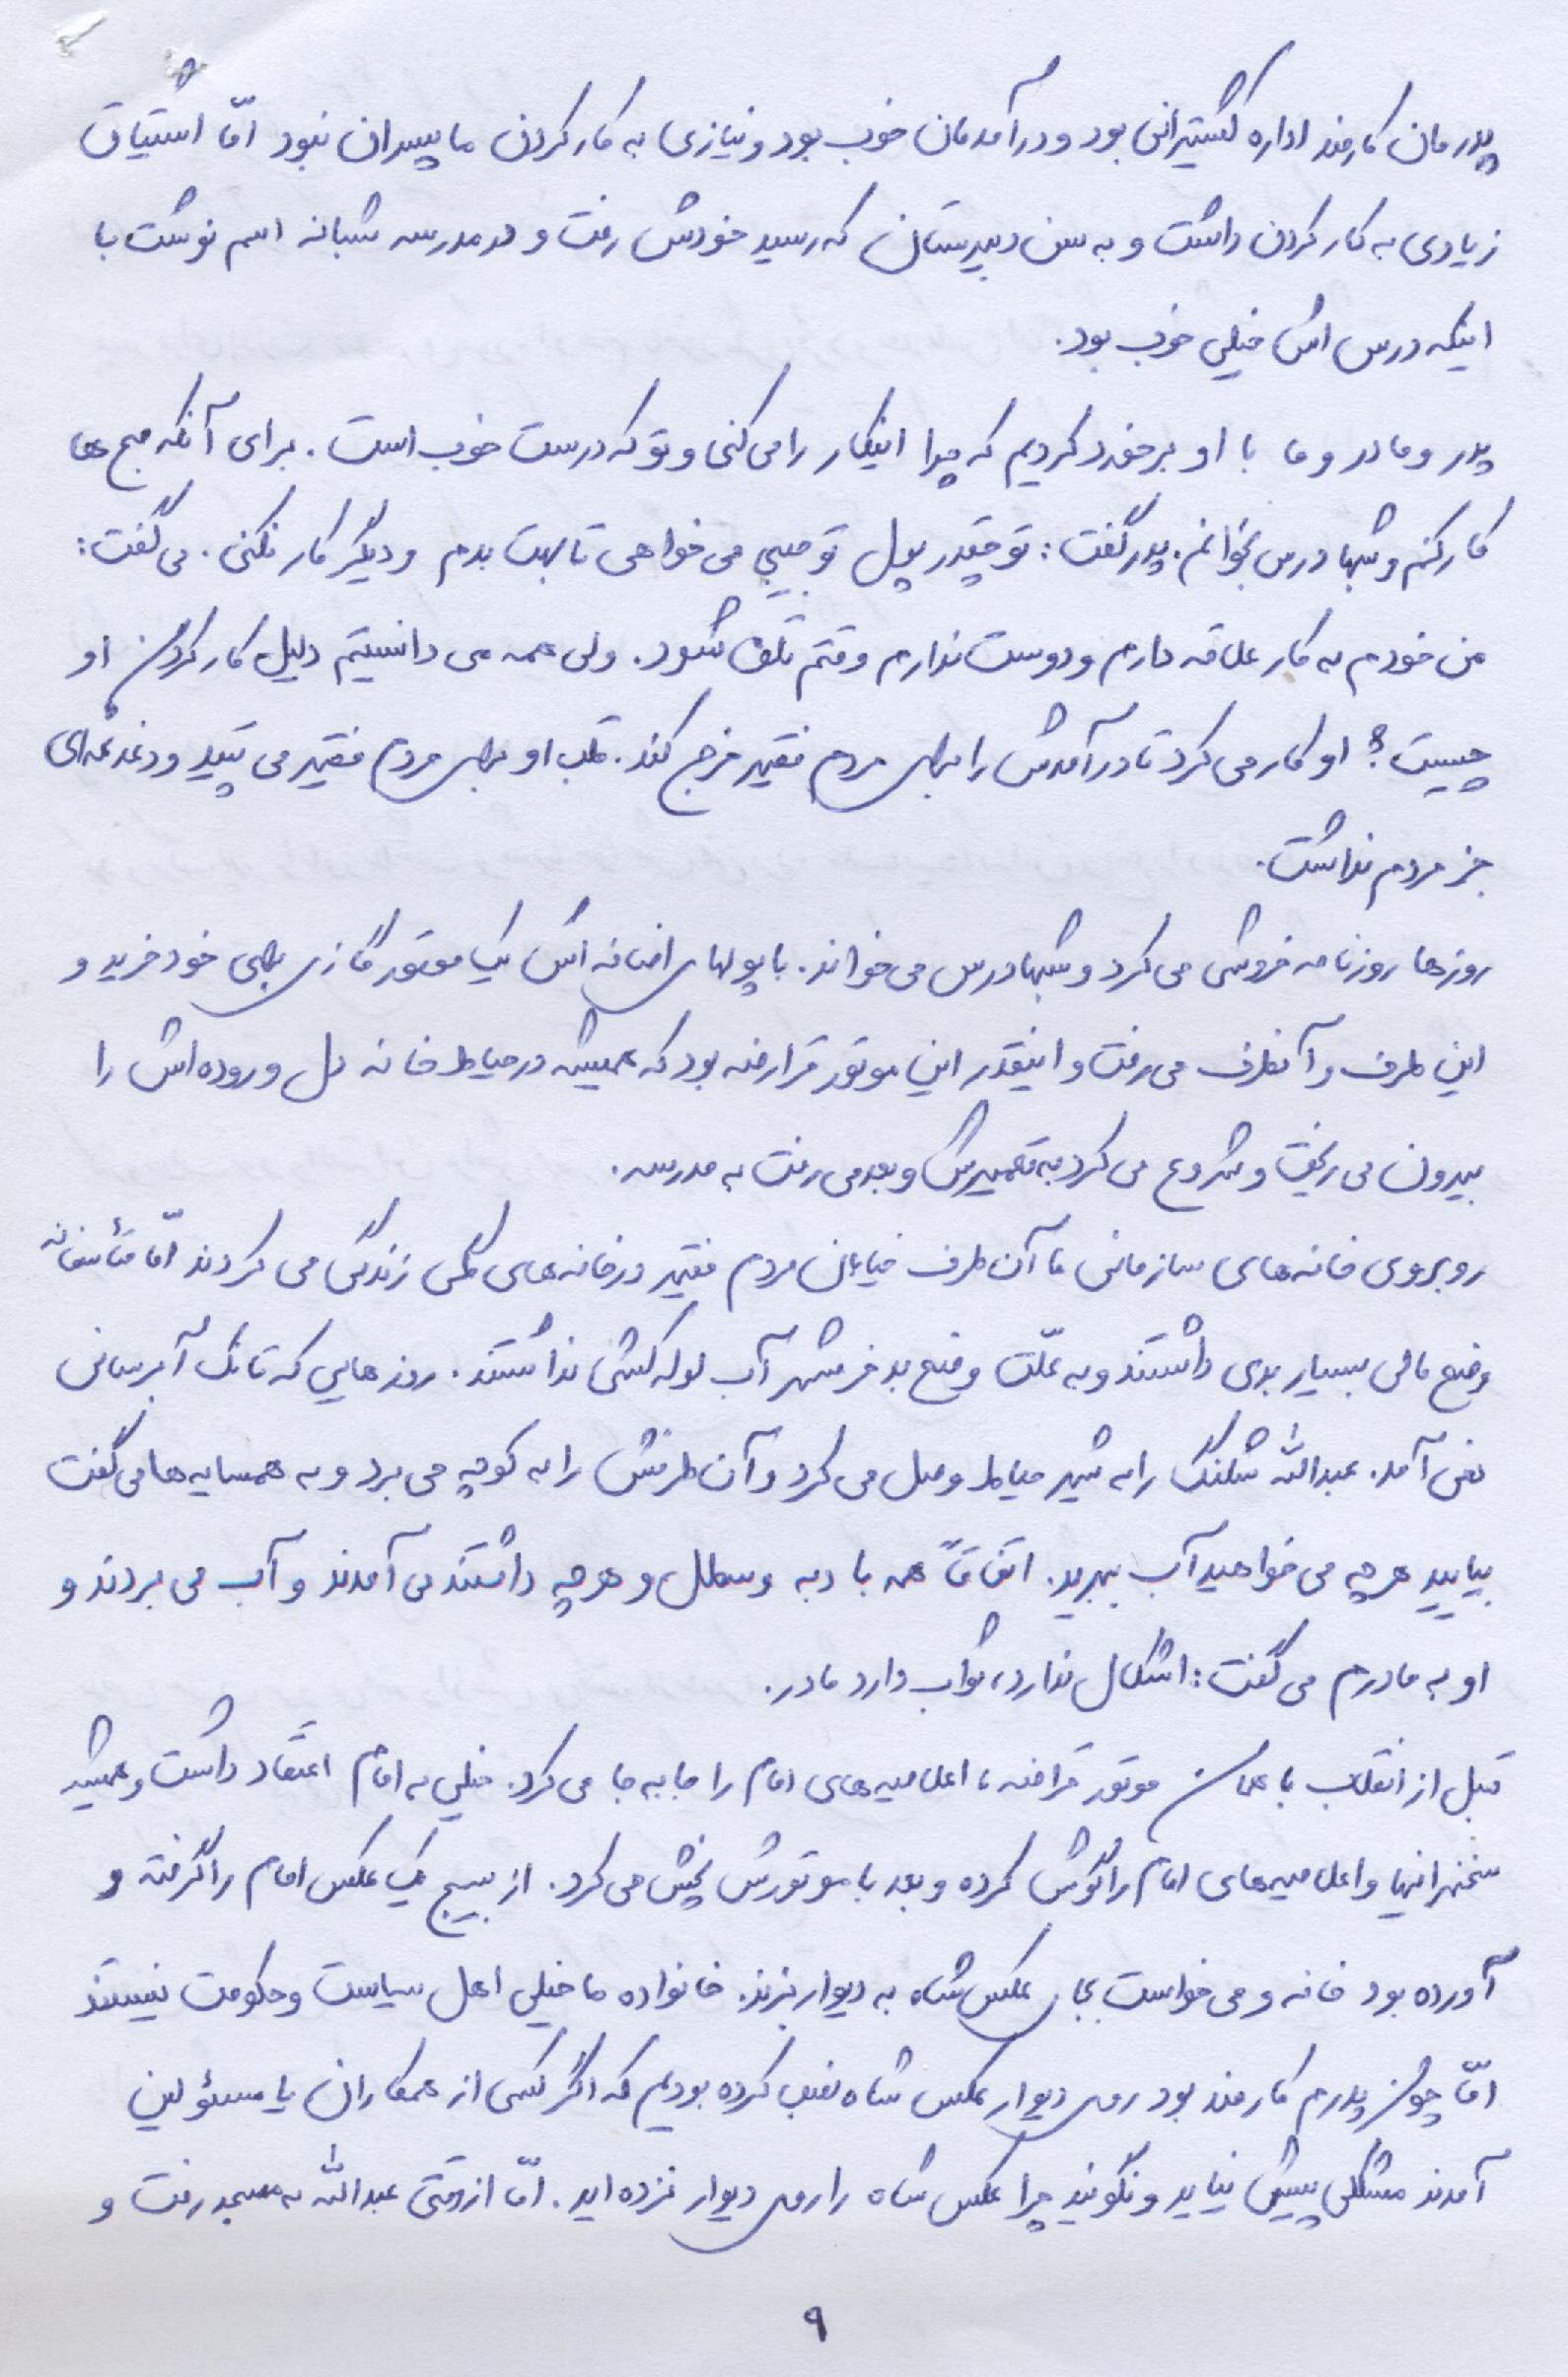 پدرمان کارمند اداره کشتیرانی بود و درآمدمان خوب بود و نیازی به کار کردن ما پسران نبود امّا اشتیاق
زیادی به کار کردن داشت و به سن دبیرستان که رسید خودش رفت و در مدرسه شبانه اسم نوشت با
اینکه درس اش خیلی خوب بود.
پدر و مادر و ما با او برخورد کردیم که چرا اینکار را می کنی و تو که درست خوب است. برای آنکه صبح ها
کار کنم و شبها درس بخوانم. پدر گفت: تو چقدر پول تو جیبی می خواهی تا بهت بدم و دیگر کار نکنی. می گفت:
من خودم به کار علاقه دارم و دوست ندارم وقتم تلف شود. ولی همه می دانستیم دلیل کار کردن او
چیست؟ او کار می کرد تا درآمدش را برای مردم فقیر خرج کند. قلب او برای مردم فقیر می تپید و دغدغه ای
جز مردم نداشت.
روزها روزنامه فروشی می کرد و شبها درس می خواند. با پولهای اضافه اش یک موتور گازی برای خود خرید و
این طرف و آنطرف می رفت و اینقدر این موتور قراضه بود که همیشه در حیاط خانه دل و روده اش را
بیرون می ریخت و شروع می کرد به تعمیرش و بعد می رفت به مدرسه.
روبروی خانه های سازمانی ما آن طرف خیابان مردم فقیر در خانه های گلی زندگی می کردند امّا متأسفانه
وضع مالی بسیار بدی داشتند و به علّت وضع بد خرمشهر آب لوله کشی نداشتند. روزهایی که تانک آبرسانی
نمی آمد. عبدالله شلنگ را به شیر حیاط وصل می کرد و آن طرفش را به کوچه می برد و به همسایه ها می گفت
بیایید هرچه می خواهید آب ببرید. اتفاقاً همه با دبه و سطل و هرچه داشتند می آمدند و آب می بردند و
او به مادرم می گفت: اشکال ندارد، ثواب دارد مادر.
قبل از انقلاب با همان موتور قراضه، اعلامیه های امام را جابه جا می کرد. خیلی به امام اعتقاد داشت و همیشه
سخنرانیها و اعلامیه های امام را گوش کرده و بعد با موتورش پخش می کرد. از بسیج یک عکس امام را گرفته و
آورده بود خانه و می خواست بجای عکس شاه به دیوار بزند. خانواده ما خیلی اهل سیاست و حکومت نیستند
امّا چون پدرم کارمند بود روی دیوار عکس شاه نصب کرده بودیم که اگر کسی از همکاران یا مسئولین
آمدند مشکلی پیش نیاید و نگویند چرا عکس شاه را روی دیوار نزده اید. امّا از وقتی عبدالله به مسجد رفت و
۹